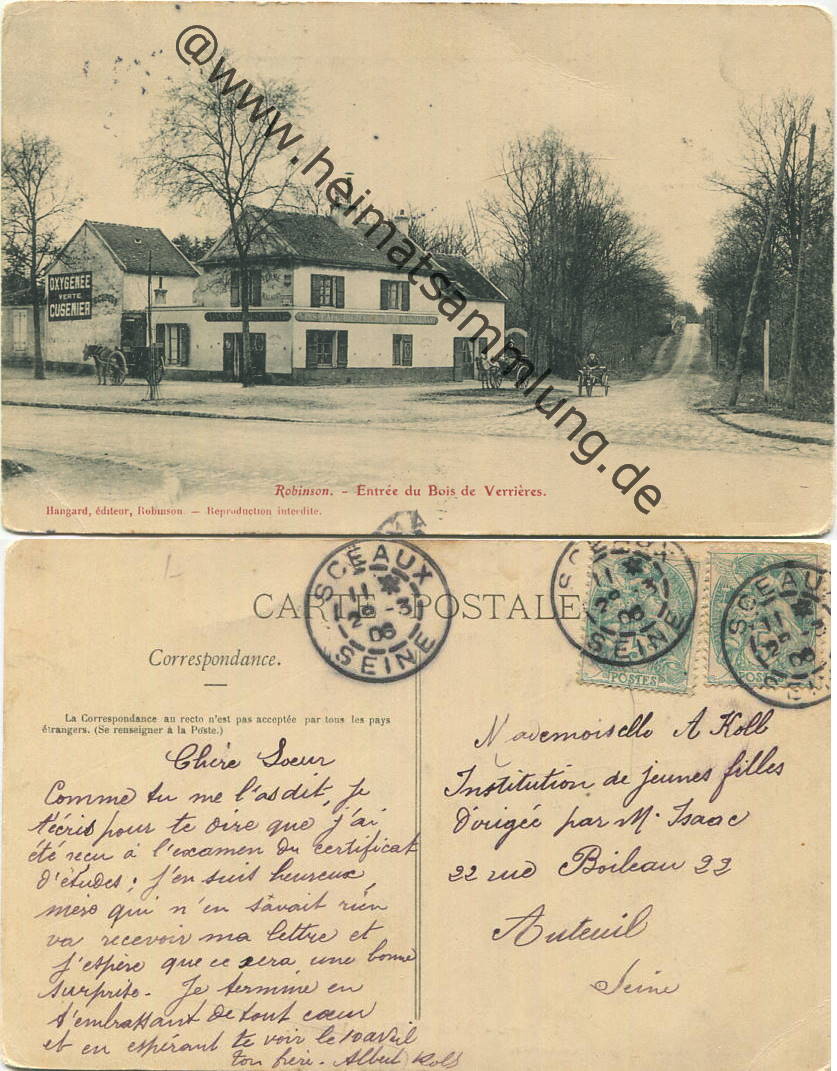 @www.heimatsammlung.de
OXYGÉNÉE
VERTE
CUSENIER
Robinson. - Entrée du Bois de Verrières.
Hangard, éditeur, Robinson. — Reproduction interdite.
SCEAUX
11
29 -3
06
SEINE
SCEAUX
11
29 -3
06
SEINE
SCEAUX
11
29
06
CARTE POSTALE
POSTES
POSTES
Correspondance.
La Correspondance au recto n'est pas acceptée par tous les pays
étrangers. (Se renseigner à la Poste.)
Chère Soeur
Comme tu me l'as dit, Je
t'écris pour te dire que j'ai
été reçu à l'examen du certificat
d'études; j'en suis heureux,
mère qui n'en savait rien
va recevoir ma lettre et
j'espère que ce sera une bonne
surprise. Je termine en
t'embrassant de tout cœur
et en espérant te voir le 10 avril
ton frère. Albert Kolb
Mademoiselle A Kolb
Institution de jeunes filles
Dirigée par M. Isaac
22 rue Boileau 22
Auteuil
Seine